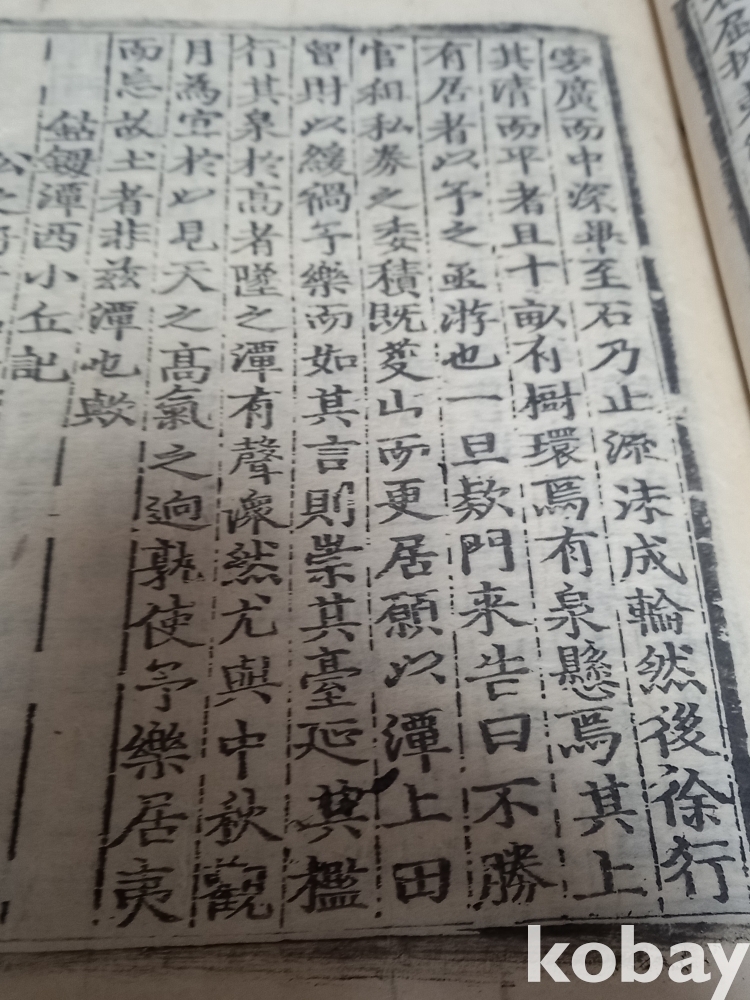 旁廣而中深畢至石乃止流沫成輪然後徐行
其清而平者且十畝有樹環焉有泉懸焉其上
有居者以予之亟游也一旦款門来告曰不勝
官租私券之委積既芟山而更居願以潭上田
曾財以緩禍予樂而如其言則崇其臺延其檻
行其泉於高者墜之潭有聲潨然尤與中秋觀
月為宜於以見天之高氣之逈孰使予樂居夷
而忘故土者非兹潭也歟
鈷鉧潭西小丘記
kobay